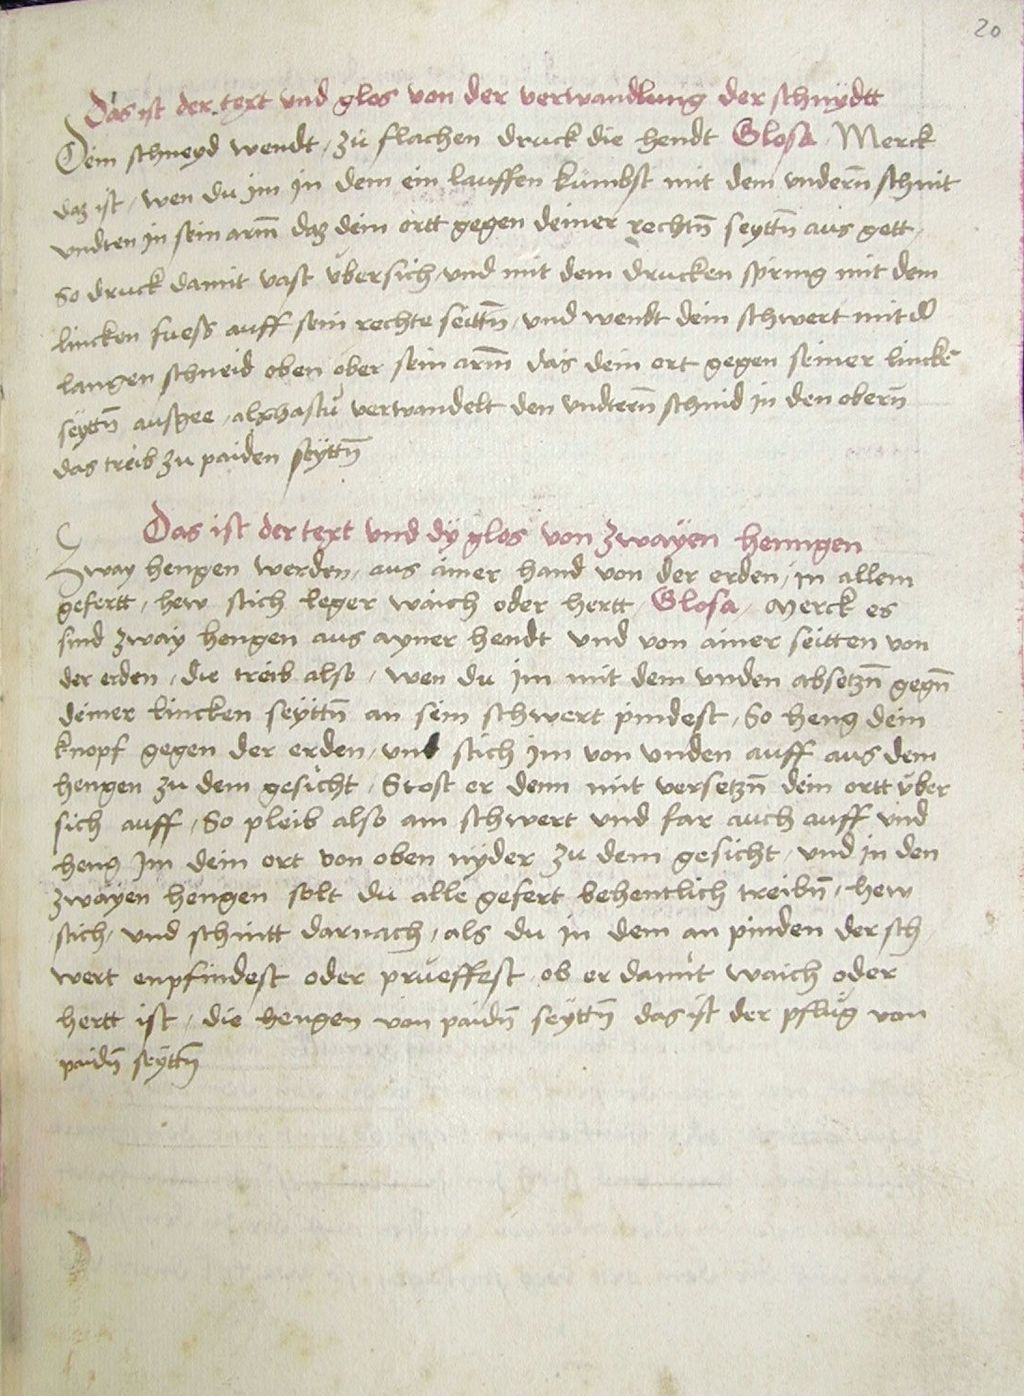 20
Das ist der text und glos von der verwandlung der schnydtt
Dein schneyd wendt, zu flachen druck die hendt Glosa Merck
daz ist, wen du im in dem ein lauffen kumbst mit dem undern̄ schnit
undten in sein arm̄ daz dein ortt gegen deiner rechtn̄ seyttn̄ aus gett,
So druck damit vast übersich, und mit dem drucken spring mit dem
lincken fuess auff sein rechte seittn̄, und wendt dein schwert mit d̄
langen schneid oben ober sein arm̄ das dein ort gegen seiner linckē
seyttn̄ ausgee, also hastu verwandelt den undtern̄ schnid in den obern̄
das treib zu paiden seyttn̄
Das ist der text und dy glos von zwayen henngen
Zway hengen werden, aus ainer hand von der erden, in allem
gefertt, hew stich leger waich oder hertt, Glosa, Merck es
sind zway hengen aus ayner hendt und von ainer seitten von
der erden, die treib also, wen du im mit dem unden absetzn̄ gegn̄
deiner lincken seyttn̄ an sein schwert pindest, So heng dein
knopf gegen der erden, und stich im von unden auff aus dem
hengen zu dem gesicht, Stost er denn mit versetzn̄ dein ortt über
sich auff, So pleib also am schwert und far auch auff und
heng im dein ort von oben nyder zu dem gesicht, und in den
zwayen hengen solt du alle gefert behentlich treibn̄, hew
stich, und schnitt darnach, als du in dem an pinden der sch
wert enpfindest oder prueffest ob er damit waich oder
hertt ist, die hengen von paidn̄ seyttn̄ das ist der pflug von
paidn̄ seyttn̄